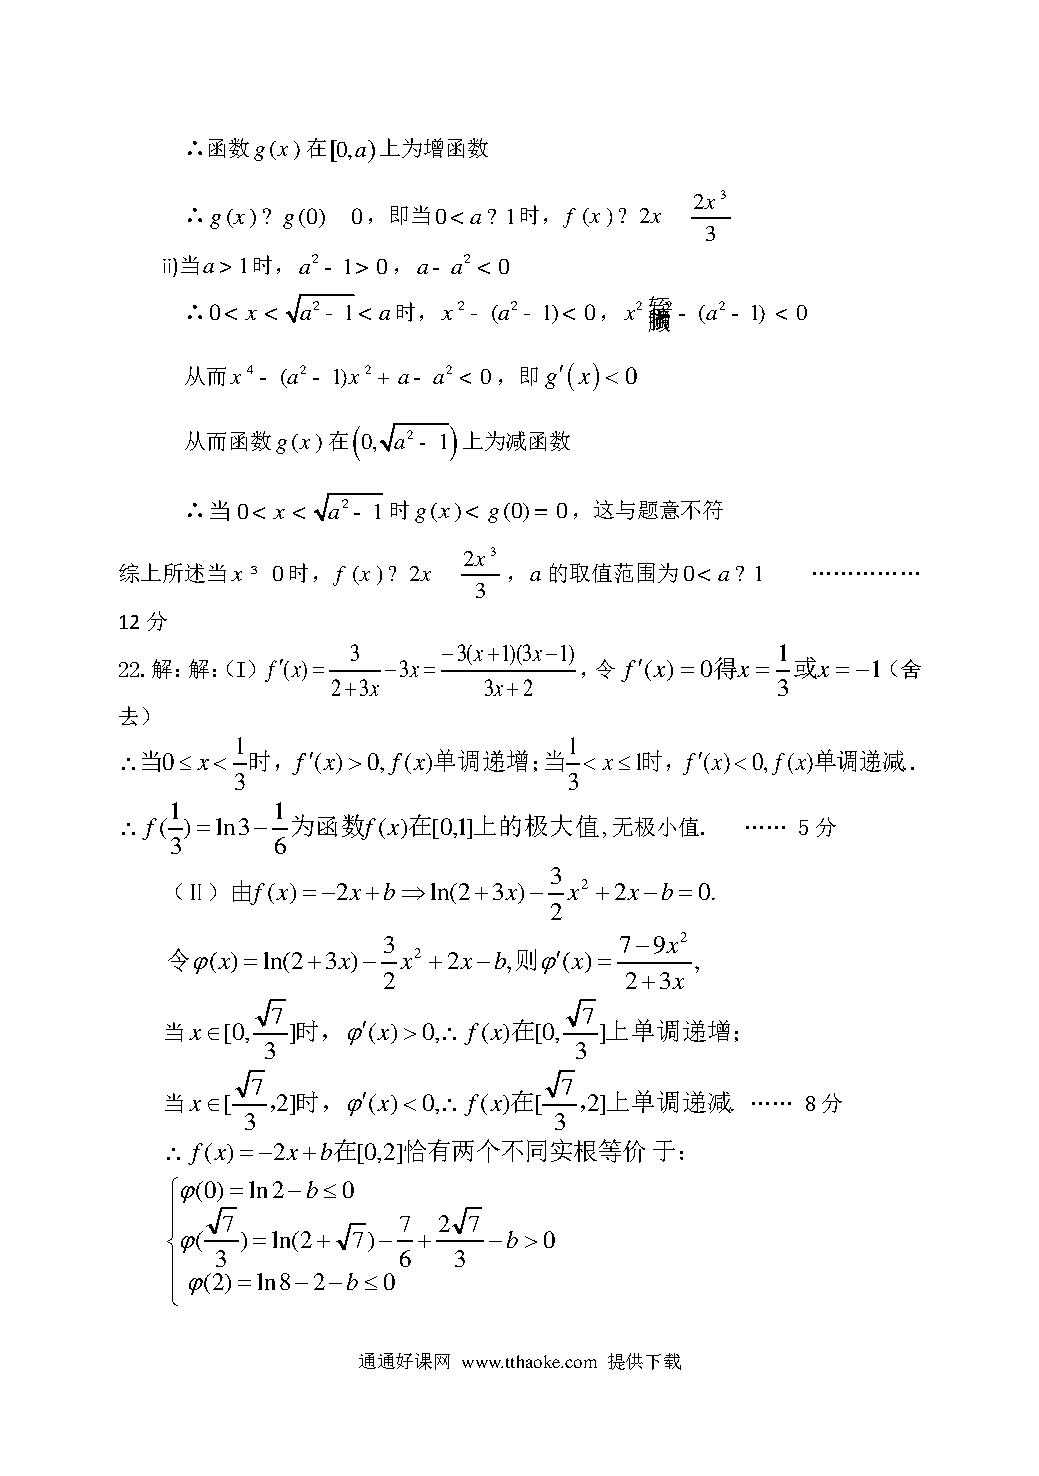 ∴函数g(x)在[0,a)上为增函数
∴g(x)? g(0) 0，即当0< a? 1时，f (x)? 2x 2x³/3
ii)当a > 1时，a² - 1> 0，a- a² < 0
∴0< x < √(a² - 1) < a时，x² - (a² - 1)< 0，x² - (a² - 1) < 0
从而x⁴ - (a² - 1)x² + a- a² < 0，即g′(x)<0
从而函数g(x)在(0, √(a² - 1))上为减函数
∴当0< x < √(a² - 1)时g(x)< g(0)= 0，这与题意不符
综上所述当x ³ 0时，f (x)? 2x 2x³/3，a的取值范围为0< a? 1 ……………
12 分
22．解：解：（I）f′(x)=3/(2+3x)−3x=−3(x+1)(3x−1)/(3x+2)，令f′(x)=0得x=1/3或x=−1（舍
去）
∴当0≤x<1/3时，f′(x)>0, f(x)单调递增；当1/3<x≤1时，f′(x)<0, f(x)单调递减．
∴f(1/3)=ln3−1/6为函数f(x)在[0,1]上的极大值，无极小值． …… 5分
（Ⅱ）由f(x)=−2x+b⇒ln(2+3x)−3/2x²+2x−b=0.
令φ(x)=ln(2+3x)−3/2x²+2x−b,则φ′(x)=(7−9x²)/(2+3x),
当x∈[0,√7/3]时，φ′(x)>0,∴f(x)在[0,√7/3]上单调递增；
当x∈[√7/3,2]时，φ′(x)<0,∴f(x)在[√7/3,2]上单调递减． …… 8分
∴f(x)=−2x+b在[0,2]恰有两个不同实根等价于：
{φ(0)=ln2−b≤0
φ(√7/3)=ln(2+√7)−7/6+2√7/3−b>0
φ(2)=ln8−2−b≤0
通通好课网 www.tthaoke.com 提供下载